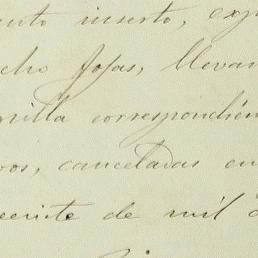 ento inserto, exp
cho fojas, llevan
milla correspondien
ros, canceladas en
veinte de mil o